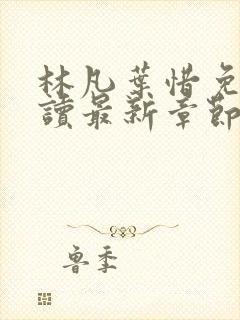 林凡葉惜免
讀最新章節
魯季